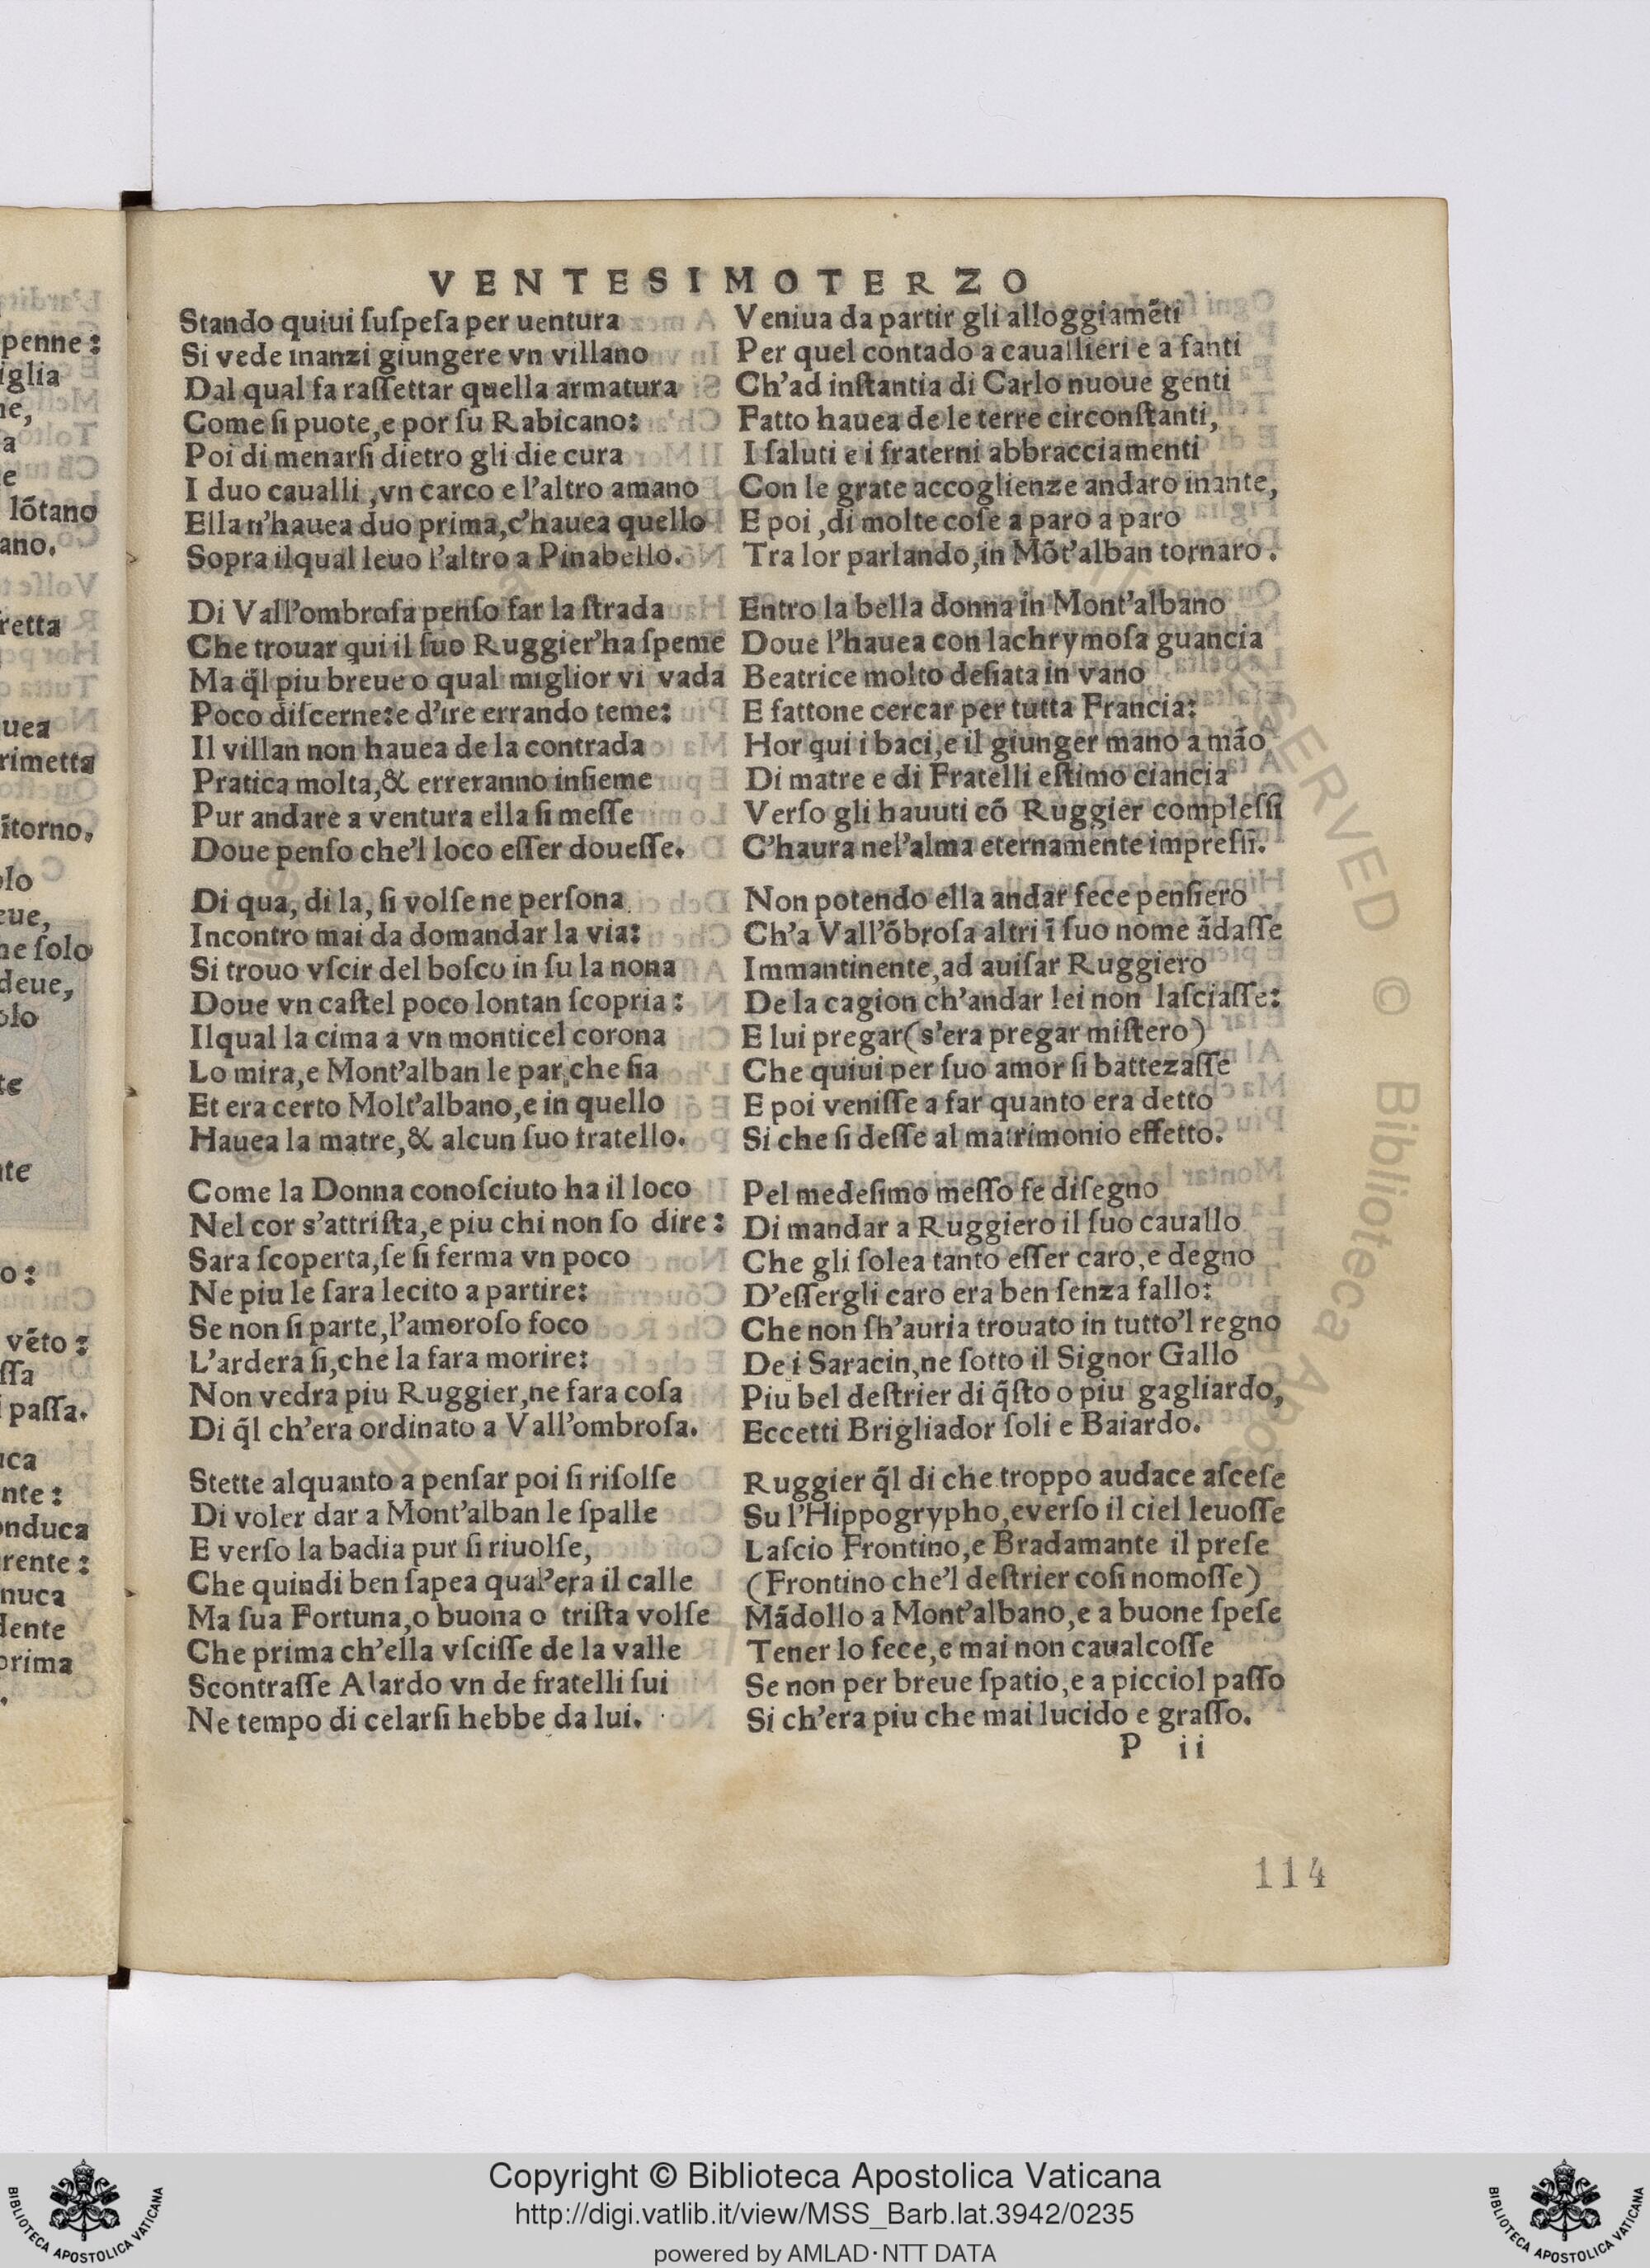 VENTESIMOTERZO
Stando quiui ſuſpeſa per uentura
Si vede inanzi giungere vn villano
Dal qual fa raſſettar quella armatura
Come ſi puote,e por ſu Rabicano:
Poi di menarſi dietro gli die cura
I duo caualli ,vn carco e l'altro amano
Ella n'hauea duo prima,c'hauea quello
Sopra ilqual leuo l'altro a Pinabello.
Di Vall'ombroſa penſo far la ſtrada
Che trouar qui il ſuo Ruggier'ha ſpeme
Ma q̃l piu breue o qual miglior vi vada
Poco diſcerne:e d'ire errando teme:
Il villan non hauea de la contrada
Pratica molta,& erreranno inſieme
Pur andare a ventura ella ſi meſſe
Doue penſo che'l loco eſſer doueſſe.
Di qua, di la, ſi volſe ne perſona
Incontro mai da domandar la via:
Si trouo vſcir del boſco in ſu la nona
Doue vn caſtel poco lontan ſcopria:
Ilqual la cima a vn monticel corona
Lo mira,e Mont'alban le par,che ſia
Et era certo Molt'albano,e in quello
Hauea la matre,& alcun ſuo fratello.
Come la Donna conoſciuto ha il loco
Nel cor s'attriſta,e piu chi non ſo dire:
Sara ſcoperta,ſe ſi ferma vn poco
Ne piu le ſara lecito a partire:
Se non ſi parte,l'amoroſo foco
L'ardera ſi,che la fara morire:
Non vedra piu Ruggier,ne fara coſa
Di q̃l ch'era ordinato a Vall'ombroſa.
Stette alquanto a penſar poi ſi riſolſe
Di voler dar a Mont'alban le ſpalle
E verſo la badia pur ſi riuolſe,
Che quindi ben ſapea qual'era il calle
Ma ſua Fortuna,o buona o triſta volſe
Che prima ch'ella vſciſſe de la valle
Scontraſſe Alardo vn de fratelli ſui
Ne tempo di celarſi hebbe da lui.
Veniua da partir gli alloggiamẽti
Per quel contado a cauallieri e a fanti
Ch'ad inſtantia di Carlo nuoue genti
Fatto hauea de le terre circonſtanti,
I ſaluti e i fraterni abbracciamenti
Con le grate accoglienze andaro inante,
E poi ,di molte coſe a paro a paro
Tra lor parlando,in Mõt'alban tornaro.
Entro la bella donna in Mont'albano
Doue l'hauea con lachrymoſa guancia
Beatrice molto deſiata in vano
E fattone cercar per tutta Francia:
Hor qui i baci,e il giunger mano a mão
Di matre e di Fratelli eſtimo ciancia
Verſo gli hauuti cõ Ruggier compleſſi
C'haura nel'alma eternamente impreſſi.
Non potendo ella andar fece penſiero
Ch'a Vall'õbroſa altri ĩ ſuo nome ãdaſſe
Immantinente,ad auiſar Ruggiero
De la cagion ch'andar lei non laſciaſſe:
E lui pregar(s'era pregar miſtero)
Che quiui per ſuo amor ſi battezaſſe
E poi veniſſe a far quanto era detto
Si che ſi deſſe al matrimonio effetto.
Pel medeſimo meſſo fe diſegno
Di mandar a Ruggiero il ſuo cauallo
Che gli ſolea tanto eſſer caro,e degno
D'eſſergli caro era ben ſenza fallo:
Che non ſh'auria trouato in tutto'l regno
De i Saracin,ne ſotto il Signor Gallo
Piu bel deſtrier di q̃ſto o piu gagliardo,
Eccetti Brigliador ſoli e Baiardo.
Ruggier q̃l di che troppo audace aſceſe
Su l'Hippogrypho,everſo il ciel leuoſſe
Laſcio Frontino,e Bradamante il preſe
(Frontino che'l deſtrier coſi nomoſſe)
Mãdollo a Mont'albano,e a buone ſpeſe
Tener lo fece,e mai non caualcoſſe
Se non per breue ſpatio,e a picciol paſſo
Si ch'era piu che mai lucido e graſſo.
P ii
114
Copyright © Biblioteca Apostolica Vaticana
http://digi.vatlib.it/view/MSS_Barb.lat.3942/0235
powered by AMLAD·NTT DATA
BIBLIOTECA APOSTOLICA VATICANA
BIBLIOTECA APOSTOLICA VATICANA